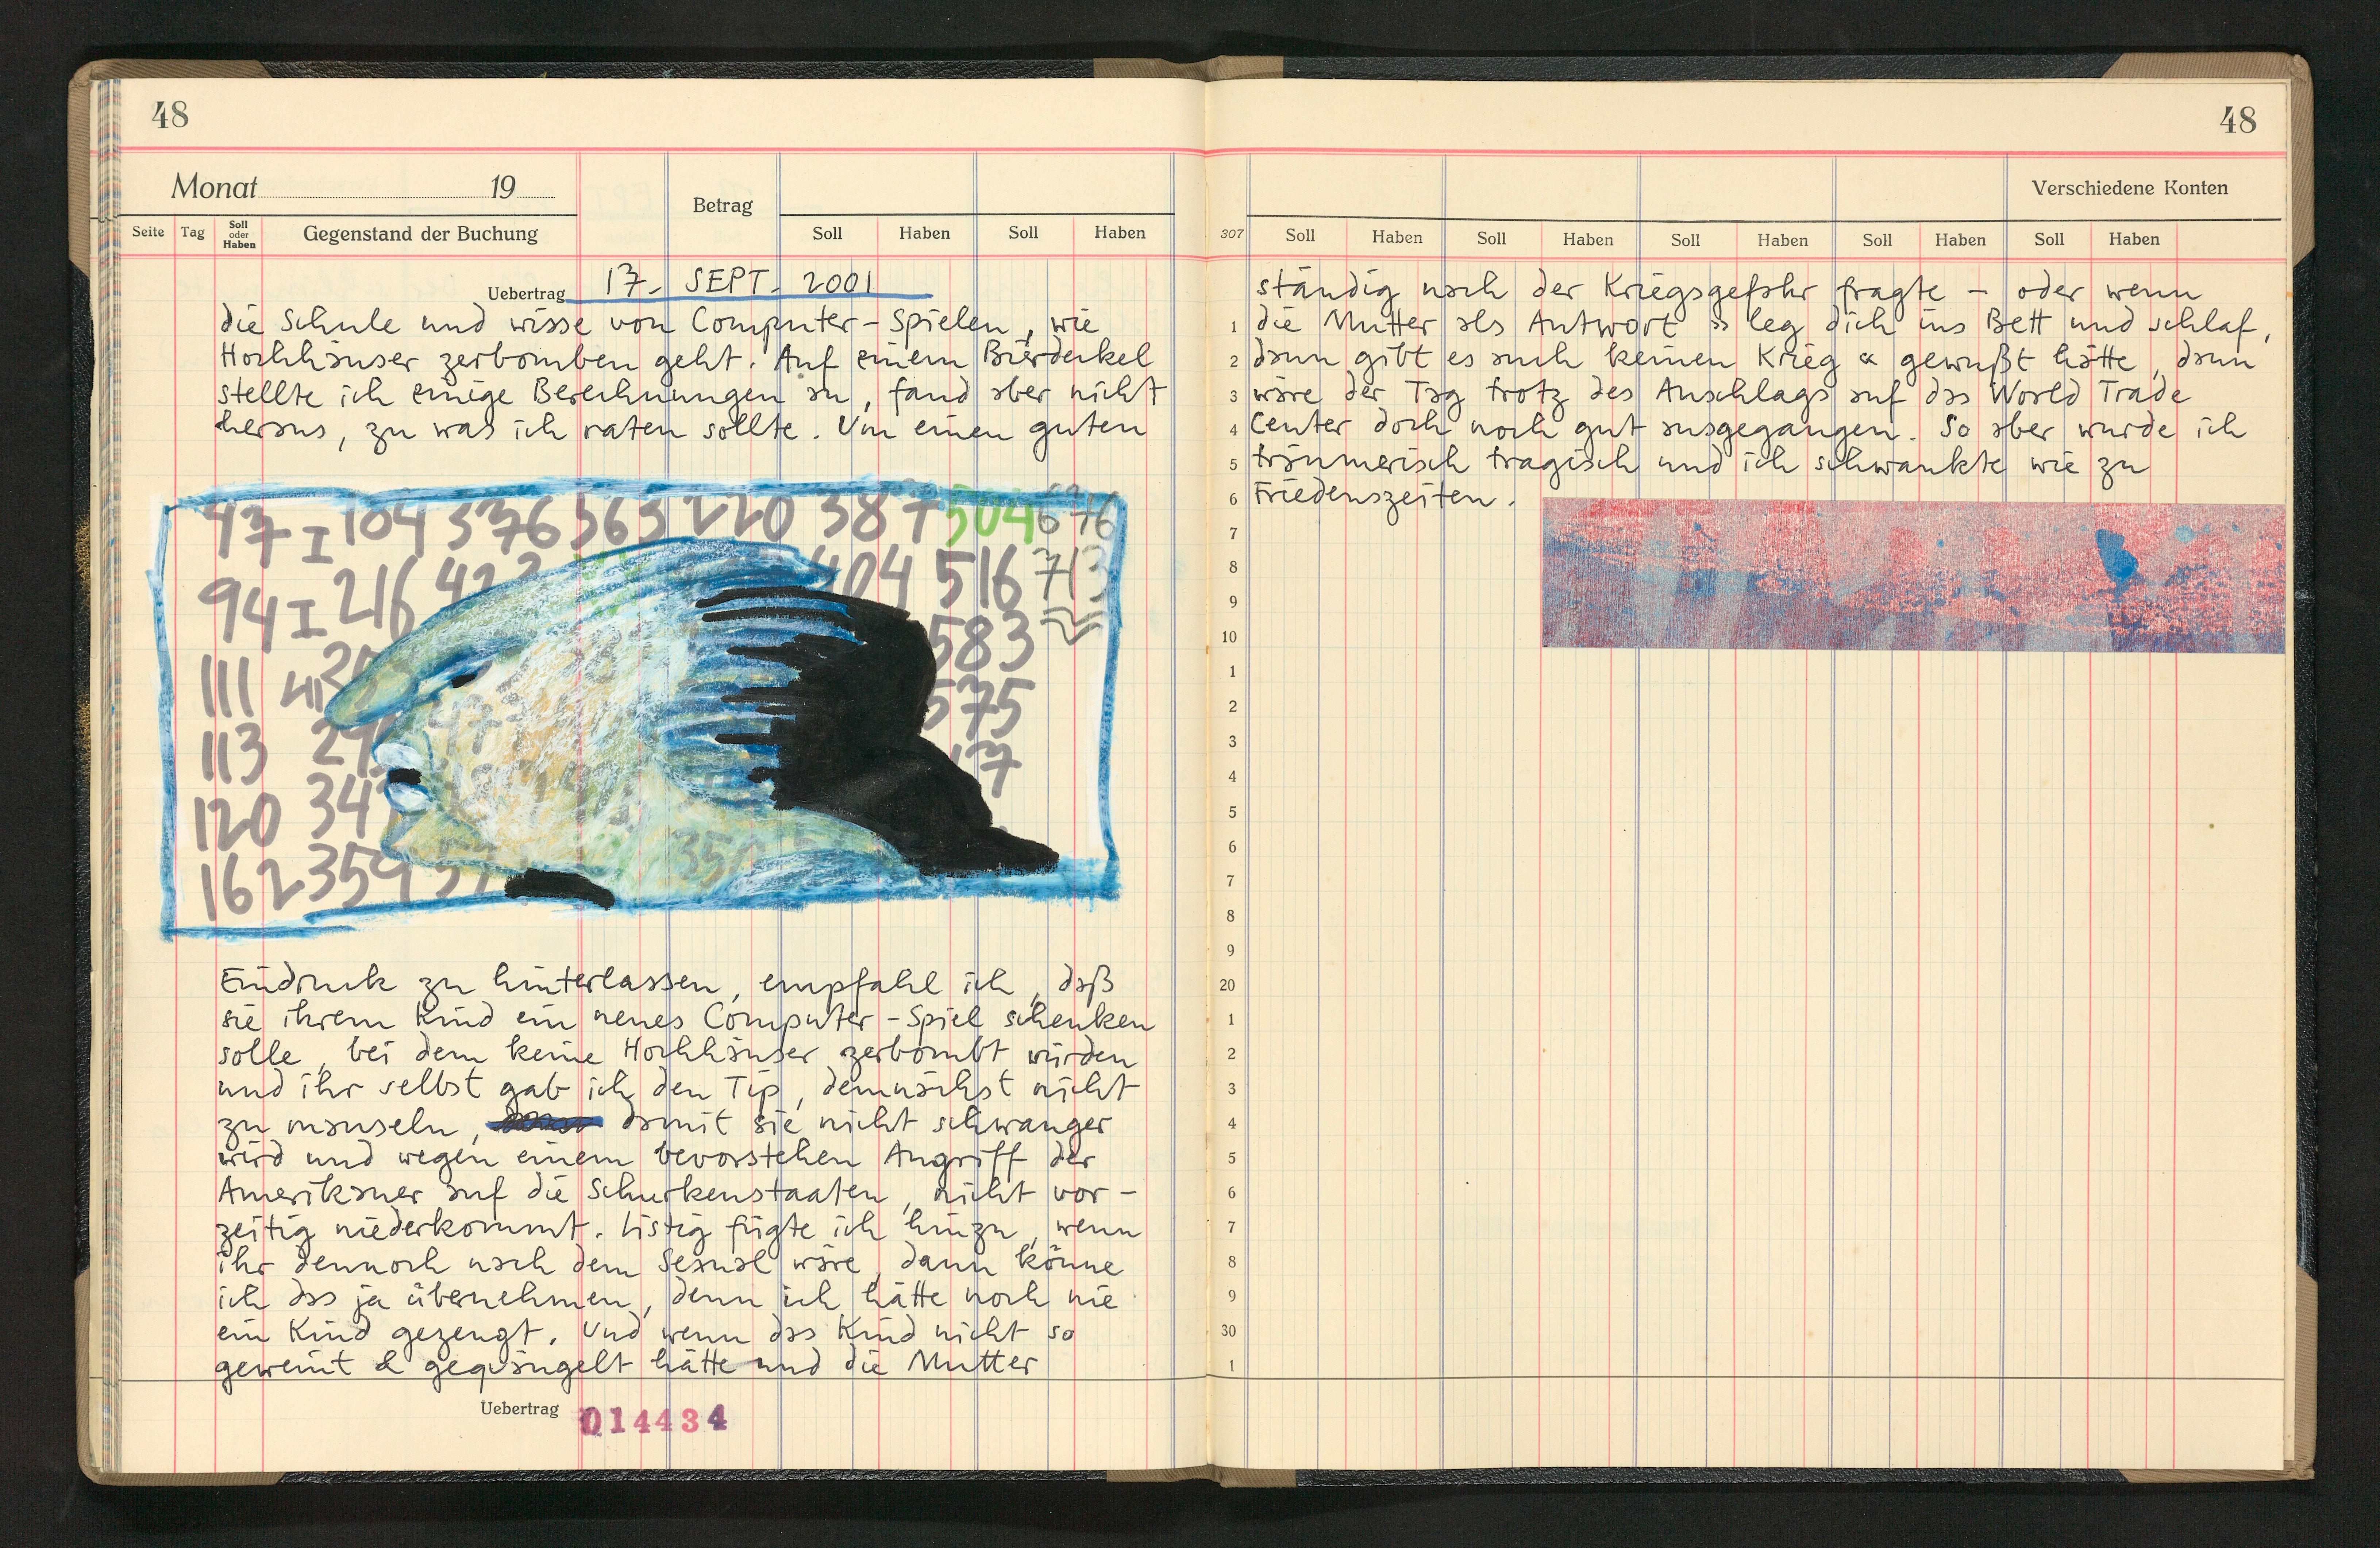 48
Monat 19
Betrag
Seite Tag Soll oder Haben Gegenstand der Buchung Soll Haben Soll Haben
Uebertrag 17. SEPT. 2001
die Schule und wisse von Computer-Spielen, wie
Hochhäuser zerbomben geht. Auf einem Bierdeckel
stellte ich einige Berechnungen an, fand aber nicht
heraus, zu was ich raten sollte. Um einen guten
47 I 104 376 563 220 387 504 676
94 I 216 404 516 713
111 41 583
113 575
120 34 17
162 359 37 35
Eindruck zu hinterlassen, empfahl ich, daß
sie ihrem Kind ein neues Computer-Spiel schenken
solle, bei dem keine Hochhäuser zerbombt würden
und ihr selbst gab ich den Tip, demnächst nicht
zu mauseln, damit sie nicht schwanger
wird und wegen einem bevorstehen Angriff der
Amerikaner auf die Schurkenstaaten, nicht vor-
zeitig niederkommt. Listig fügte ich hinzu, wenn
ihr dennoch nach dem Sexual wäre, dann könne
ich das ja übernehmen, denn ich hätte noch nie
ein Kind gezeugt. Und wenn das Kind nicht so
geweint & gequängelt hätte und die Mutter
Uebertrag 014434
48
Verschiedene Konten
307 Soll Haben Soll Haben Soll Haben Soll Haben Soll Haben
ständig nach der Kriegsgefahr fragte – oder wenn
1 die Mutter als Antwort » leg dich ins Bett und schlaf,
2 dann gibt es auch keinen Krieg « gewußt hätte, dann
3 wäre der Tag trotz des Anschlags auf das World Trade
4 Center doch noch gut ausgegangen. So aber wurde ich
5 träumerisch tragisch und ich schwankte wie zu
6 Friedenszeiten.
7
8
9
10
1
2
3
4
5
6
7
8
9
20
1
2
3
4
5
6
7
8
9
30
1